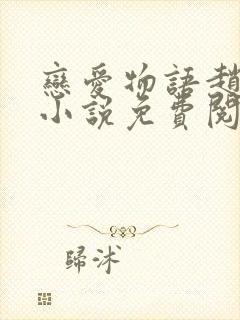 戀愛物語趙
小說免費閱
歸沭